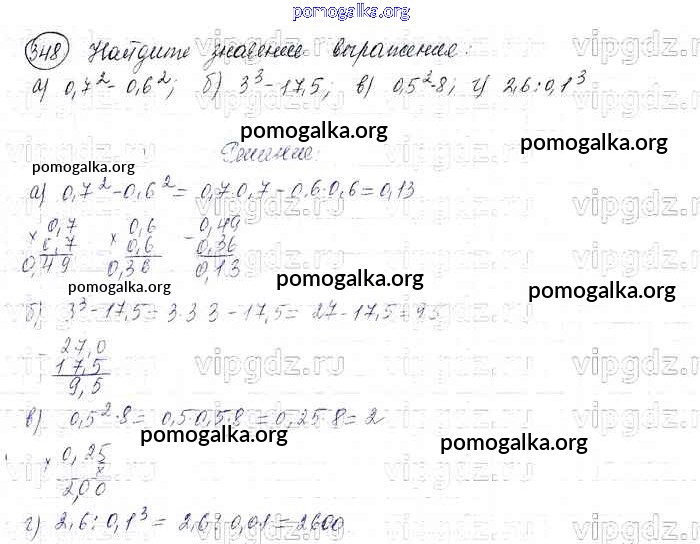 pomogalka.org
348 Найдите значение выражение:
а) 0,7² - 0,6²; б) 3³ - 17,5; в) 0,5² · 8; г) 2,6 : 0,1³
pomogalka.org
pomogalka.org
Решение:
pomogalka.org
а) 0,7² - 0,6² = 0,7·0,7 - 0,6·0,6 = 0,13
vipgdz.ru
× 0,7 × 0,6 - 0,49
0,7 0,6 0,36
0,49 0,36 0,13
pomogalka.org
pomogalka.org
б) 3³ - 17,5 = 3·3·3 - 17,5 = 27 - 17,5 = 9,5
27,0
17,5
9,5
vipgdz.ru
в) 0,5² · 8 = 0,5·0,5·8 = 0,25·8 = 2
pomogalka.org
pomogalka.org
× 0,25
2,00
г) 2,6 : 0,1³ = 2,6 : 0,01 = 2600
vipgdz.ru